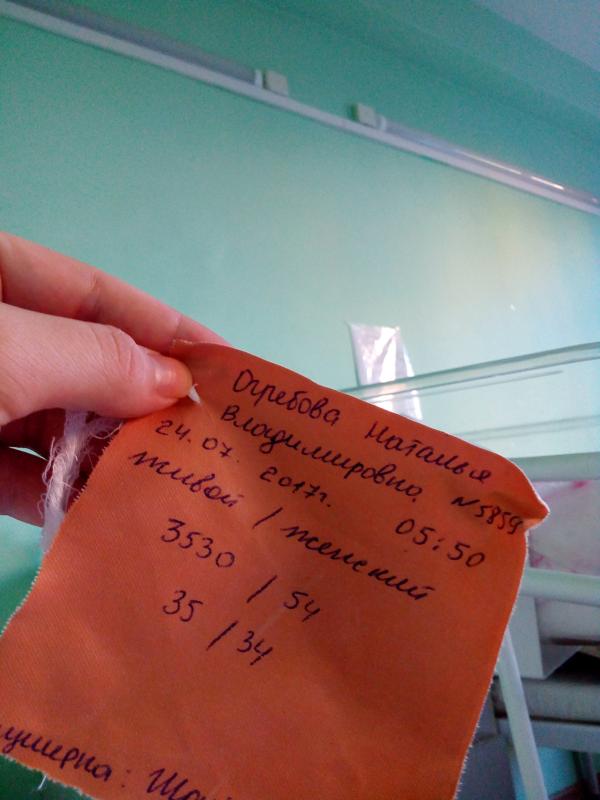 Огребова Наталья
Владимировна N5859
24.07. 2017г. 05:50
живой / женский
3530 / 54
35 / 34